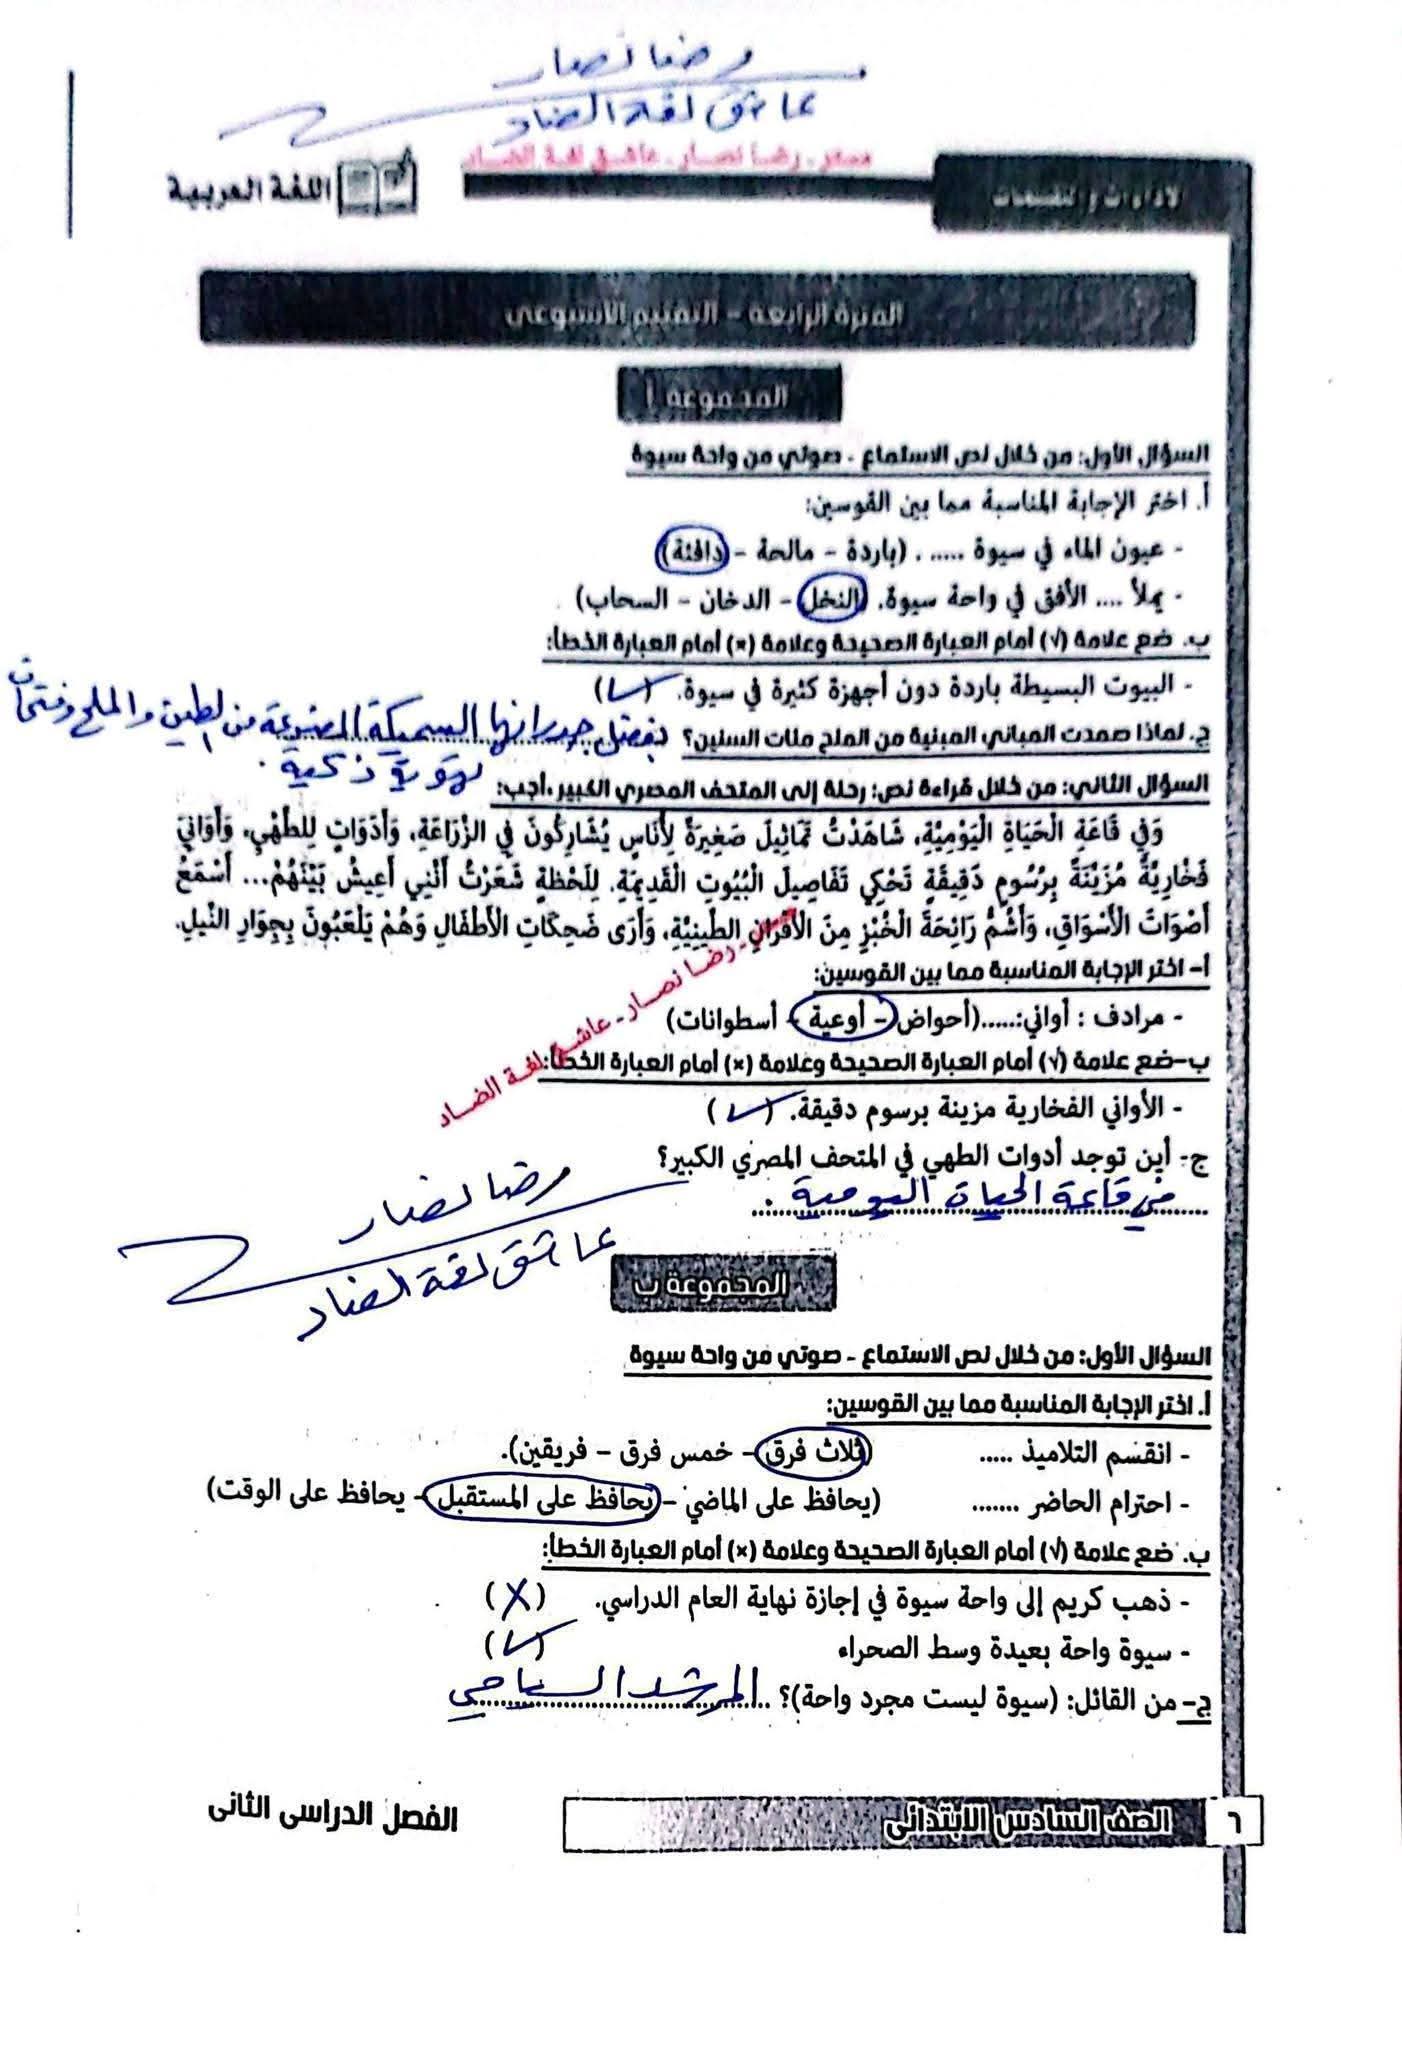 رضا نصار
عاشق لغة الضاد
مستر. رضا نصار. عاشق لغة الضاد
الأداءات والتقييمات
اللغة العربية
الفترة الرابعة - التقييم الأسبوعي
المجموعة أ
السؤال الأول: من خلال نص الاستماع - صوتي من واحة سيوة
أ. اختر الإجابة المناسبة مما بين القوسين:
- عيون الماء في سيوة ..... . (باردة - مالحة - دافئة)
- يملأ .... الأفق في واحة سيوة. (النخل - الدخان - السحاب) .
ب. ضع علامة (√) أمام العبارة الصحيحة وعلامة (×) أمام العبارة الخطأ:
- البيوت البسيطة باردة دون أجهزة كثيرة في سيوة. (✓)
ج. لماذا صمدت المباني المبنية من الملح مئات السنين؟ بفضل جدرانها السميكة المصنوعة من الطين والملح وفتحات
تهوية ذكية .
السؤال الثاني: من خلال قراءة نص: رحلة إلى المتحف المصري الكبير .أجب:
وَفِي قَاعَةِ الْحَيَاةِ الْيَوْمِيَّةِ، شَاهَدْتُ تَمَاثِيلَ صَغِيرَةً لِأُنَاسٍ يُشَارِكُونَ فِي الزِّرَاعَةِ، وَأَدَوَاتٍ لِلطَّهْيِ، وَأَوَانِيَ
فَخَّارِيَّةً مُزَيَّنَةً بِرُسُومٍ دَقِيقَةٍ تَحْكِي تَفَاصِيلَ الْبُيُوتِ الْقَدِيمَةِ. لِلَحْظَةٍ شَعَرْتُ أَنَّنِي أَعِيشُ بَيْنَهُمْ... أَسْمَعُ
أَصْوَاتَ الْأَسْوَاقِ، وَأَشُمُّ رَائِحَةَ الْخُبْزِ مِنَ الْأَفْرَانِ الطِّينِيَّةِ، وَأَرَى ضَحِكَاتِ الْأَطْفَالِ وَهُمْ يَلْعَبُونَ بِجِوَارِ النِّيلِ.
أ- اختر الإجابة المناسبة مما بين القوسين:
- مرادف : أواني:.....(أحواض - أوعية - أسطوانات)
ب-ضع علامة (√) أمام العبارة الصحيحة وعلامة (×) أمام العبارة الخطأ:
- الأواني الفخارية مزينة برسوم دقيقة. (✓)
مستر. رضا نصار. عاشق لغة الضاد
ج- أين توجد أدوات الطهي في المتحف المصري الكبير؟
في قاعة الحياة اليومية .
رضا نصار
عاشق لغة الضاد
المجموعة ب
السؤال الأول: من خلال نص الاستماع - صوتي من واحة سيوة
أ. اختر الإجابة المناسبة مما بين القوسين:
- انقسم التلاميذ ..... (ثلاث فرق - خمس فرق - فريقين).
- احترام الحاضر ....... (يحافظ على الماضي - يحافظ على المستقبل - يحافظ على الوقت)
ب. ضع علامة (√) أمام العبارة الصحيحة وعلامة (×) أمام العبارة الخطأ:
- ذهب كريم إلى واحة سيوة في إجازة نهاية العام الدراسي. (X)
- سيوة واحة بعيدة وسط الصحراء (✓)
ج- من القائل: (سيوة ليست مجرد واحة)؟ المرشد السياحي
٦
الصف السادس الابتدائى
الفصل الدراسى الثانى